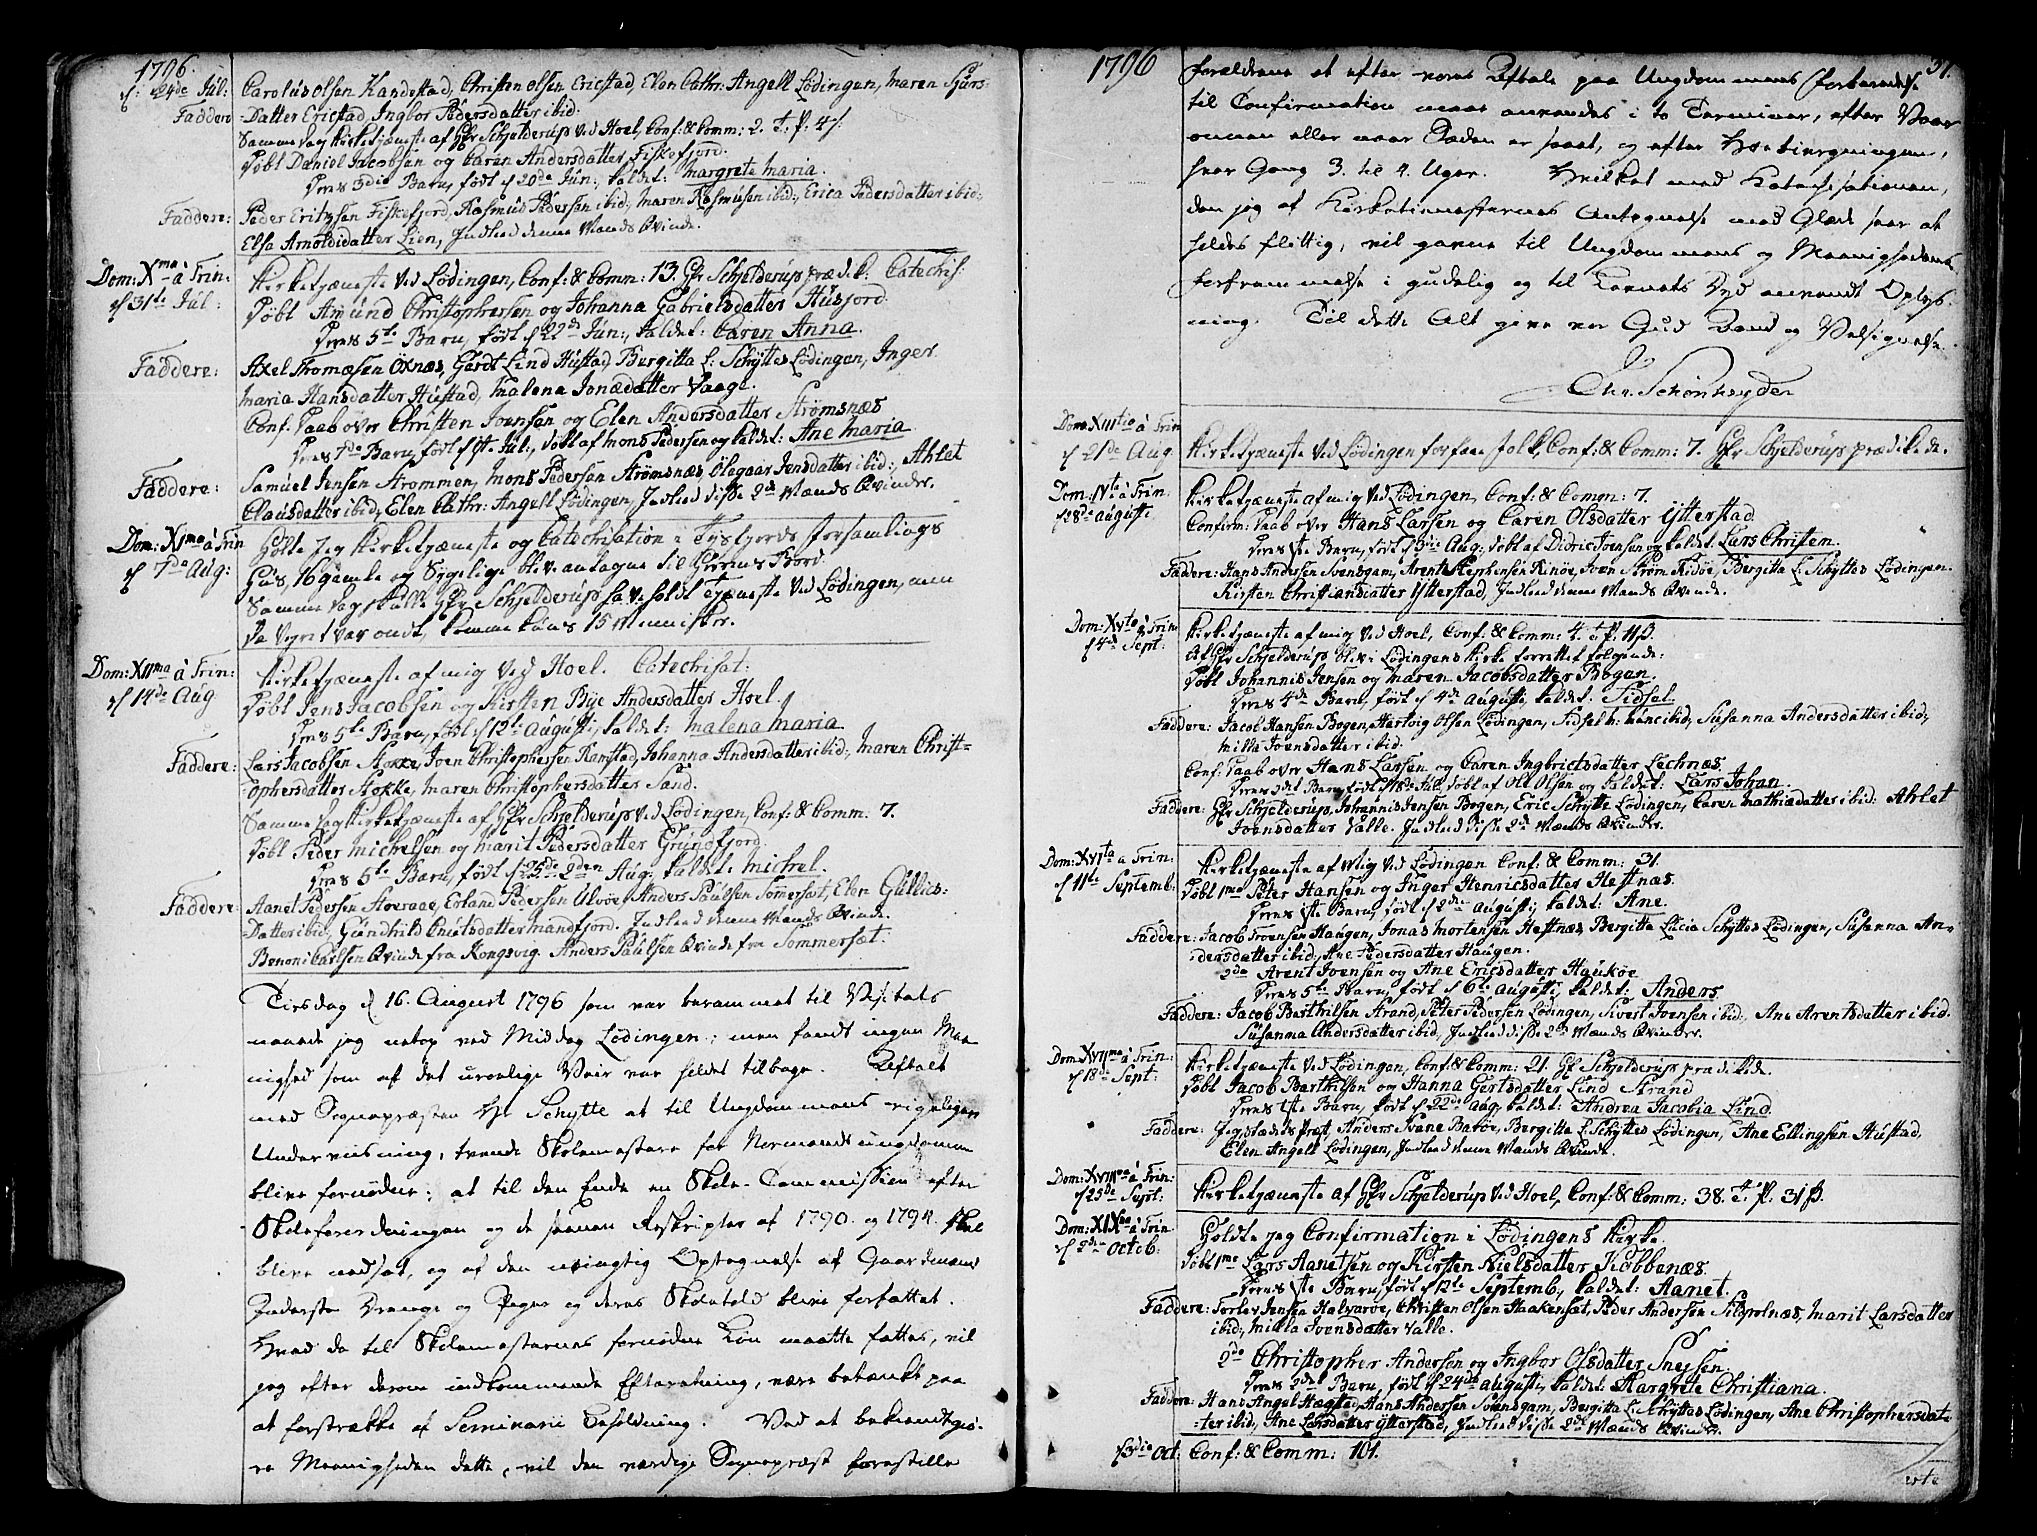 1796.
d: 24de Jul: Carolus Olsen Kandestad, Christen Olsen Ericstad, Elen Cathr: Angell Lødingen, Maren Sjurs-
Faddere Datter Ericstad, Ingbor Pedersdatter ibid:
Samme Dag Kirketjæneste af Hr Schjelderup ved Hoel, Conf: & Comm: 2. T. P. 4 s.
Døbt Daniel Jacobsen og Caren Andersdatter, Fiskefjord.
Deres 3die Barn, født d 20de Jun:, kaldet: Margrete Maria.
Faddere: Peder Eritzsen Fiskefjord, Rasmus Pedersen ibid:, Maren Rasmusen ibid:, Erica Pedersdatter ibid:,
Elsa Arnoldsdatter Lien, Indleed denne Mands Qvinde.
Dom: Xma à Trin: Kirketjæneste ved Lødingen, Conf: & Comm: 13. Hr Schjelderup prædik: Catechis:
d 31te Jul: Døbt Amund Christophersen og Johanna Gabrielsdatter Husjord.
Deres 5te Barn, født d 22de Jun:, kaldet: Caren Anna.
Faddere: Axel Thomæsen Oxnæs, Gerdt Lind Hustad, Bergitta L: Schyttes Lødingen, Inger
Maria Hansdatter Hustad, Malena Jonædatter Vaage.
Conf: Daab over Christen Joensen og Elen Andersdatter Strømsnæs
Deres 7de Barn, født d Jul:, døbt af Mons Pedersen og kaldet: Ane Maria.
Faddere: Samuel Jensen Strømmen, Mons Pedersen Strømsnæs, Olegaar Jensdatter ibid:, Ahlet
Clausdatter ibid:, Elen Cathr: Angell Lødingen, Indleed disse 2de Mænds Qvinder.
Dom: XIma à Trin Holte Jeg Kirketjæneste og Catechisation i Tysfjords Forsamlings
d 7de Aug: Huus, 16 gamle og Sygelige bleve antagne til Herrens Bord.
Samme Dag skulle Hr Schjelderup have holdt Tjæneste ved Lødingen, men
da Vejret var ondt, komme kuns 15 Mennisker.
Dom: XIIma à Trin: Kirketjæneste af mig ved Hoel. Catechisat:
d 14de Aug Døbt Jens Jacobsen og Kirsten Bye Andersdatter Hoel.
Deres 5te Barn, født d 12te Augusti, kaldet: Malena Maria
Faddere: Lars Jacobsen Stokke, Joen Christophersen Ramstad, Johanna Andersdatter ibid:, Maren Christ=
ophersdatter Stokke, Maren Christophersdatter Sand.
Samme Dag Kirketjæneste af Hr Schjelderup ved Lødingen, Conf: & Comm: 7.
Døbt Peder Michelsen og Marit Pedersdatter Grundfjord.
Deres 5te Barn, født d 25de 2den Aug: kaldet: Michel.
Faddere: Aanet Pedersen Storaae, Erland Pedersen Ulvøe, Anders Paulsen Sommerset, Elen Gullis:
Datter ibid:, Gundhild Cnutsdatter Mandfjord. Indleed denne Mands Qvinde.
Benoni Carlsen Qvinde fra Kongsvig. Anders Paulsen Qvinde fra Sommersæt.
Tirsdag d 16. August 1796 som var berammet til Visitats
naaede jeg netop ved Middag Lødingen; men fandt ingen Mee-
nighed som af det urolige Veir var holdet tilbage. Aftalt
med Sognepræsten Hr Schytte at til Ungdommens rigeligere
Underviisning, trende Skolemestere for Normands ungdommen
blive fornødne; at til den Ende en Skole-Commission efter
Skoleforordningen og de senere Reskripter af 1790. og 1794. skal
blive nedsat, og af den nøiagtig Optegnelse af Gaardmænd
Inderster Drenge og Piger og deres Skolehold blive forfattet.
Hvad da til Skolemesternes fornødne Løn maatte fattes, vil
jeg efter derom indkommende Efterretning, være betænkt paa
at forstrække af Seminarii Beholdning. Ved at bekiendtgiø-
re Meenigheden dette, vil den værdige Sognepræst forestille
1796 31.
Forældrene at efter vores Aftale paa Ungdommens Forberedelse
til Confirmation maae anvendes i to Terminer, efter Vaar
onnen eller naar Sæden er saaet, og efter Høebiergningen,
hver Gang 3. til 4. Uger. Hvilket med Katechisationen,
den jeg af Kirketienesternes Antegnelse med Glæde seer at
holdes flittig, vil gavne til Ungdommens og Meenighedens
forfremmelse i gudelig og til Lærnets Dyd anvendt Oplys-
ning. Til dette Alt give vor Gud Raad og Velsignelse.
Chr. Schønheyder
Dom: XIIItio à Trin
d 21de Aug Kirketjæneste ved Lødingen for faae Folk, Conf: & Comm: 7. Hr Schjelderup prædikede.
Dom: IVta à Trin: Kirketjæneste af mig ved Lødingen, Conf: & Comm: 7.
d 28de Augusti Confirm: Daab over Hans Larsen og Caren Olsdatter Ytterstad.
Deres 1te Barn, født d 3die Aug: døbt af Didric Joensen og kaldet: Lars Christen.
Faddere: Hans Andersen Svensgam, Arent Stephensen Rinøe, Joen Strøm Ridøe, Bergitta L. Schyttes Lødingen.
Kirsten Christiansdatter Ytterstad, Indleed denne Mands Qvinde.
Dom: XVto à Trin: Kirketjæneste af mig ved Hoel, Conf: & Comm: 4. T. P. 11 s.
d 4de Sept: Af Hr Schjelderup blev i Lødingens Kirke forrettet følgende:
Døbt Johannis Jensen og Maren Jacobsdatter Bogen.
Deres 4de Barn, født d 4de Augusti, kaldet: Sidsel.
Faddere: Jacob Hansen Bogen, Hertvig Olsen Lødingen, Sidsel H: Lunc ibid:, Susanna Andersdatter ibid:,
Milla Joensdatter ibid.
Conf: Daab over Hans Larsen og Caren Ingbrictsdatter Lechnæs
Deres 2det Barn, født d 18de Jul, døbt af Ole Olsen og kaldet: Lars Johan.
Faddere: Hr Schjelderup, Johannis Jensen Bogen, Eric Schytte Lødingen, Caren Mathiædatter ibid: Ahlet
Joensdatter Valle. Indleed disse 2de Mænds Qvinder.
Dom: XVIta à Trin: Kirketjæneste af Mig ved Lødingen Conf: & Comm: 31.
d 11te Septemb: Døbt 1mo Peter Hansen og Inger Henricsdatter Heftnæs.
Deres 1te Barn, født d 2de Augusti, kaldet: Ane.
Faddere: Jacob Troensen Haugen, Jonas Mortensen Heftnæs, Bergitta Lucia Schyttes Lødingen, Susanna An-
dersdatter ibid:, Ane Pedersdatter Haugen.
2do Arent Joensen og Ane Ericsdatter Haukøe
Deres 5te Barn, født d 6te Augusti, kaldet: Anders.
Faddere: Jacob Barthilsen Strand, Peter Pedersen Lødingen, Sivert Joensen ibid:, Ane Arentsdatter ibid.
Susanna Andersdatter ibid:, Indleed disse 2de Mænds Qvinder.
Dom: XVIIma à Trin: Kirketjæneste ved Lødingen, Conf: & Comm: 21. Hr Schjelderup prædikede.
d 18de Sept: Døbt Jacob Barthilsen og Hanna Gertsdatter Lind Strand
Deres 1te Barn, født d 22de Aug, kaldet: Andrea Jacobia Lind.
Faddere: Jeg stædes Præst, Anders Svane Barøe, Bergitta L. Schyttes Lødingen, Ane Ellingsen Hustad,
Elen Angell Lødingen, Indleed denne Mands Qvinde.
Dom: XVIIIma à Trin:
d 25de Sept: Kirketjæneste af Hr Schjelderup ved Hoel, Conf: & Comm: 38. T. P. 31 s.
Dom: XIXma à Trin Holdte Jeg Confirmation i Lødingens Kirke.
d 2den Octob: Døbt 1mo Lars Aanetsen og Kirsten Nielsdatter Kobbenæs.
Deres 1te Barn, født d 12te Septemb, kaldet: Aanet.
Faddere: Torlev Jensen Halvarøe, Christen Olsen Haakenset, Peder Andersen Sildpolnæs, Marit Larsdatter
ibid:, Milla Joensdatter Valle.
2do Christopher Andersen og Ingbor Olsdatter Snejsen.
Deres 2det Barn, født d 24de Augusti, kaldet: Margrete Christiana.
Faddere: Hans Angel Hegstad, Hans Andersen Svensgam, Bergitta L. Schyttes Lødingen, Ane Christophersdat-
ter ibid, Ane Larsdatter Ytterstad, Indleed disse 2de Mænds Qvinder.
d 3die Oct: Conf: & Comm: 101.